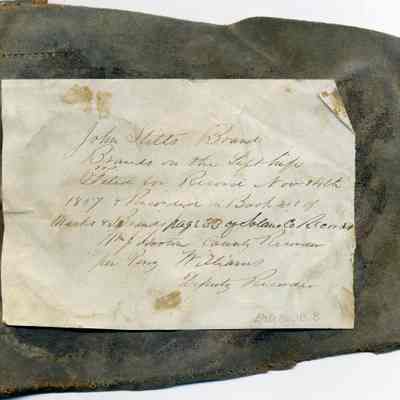 John Stitts Brand
Brands on the Left hip
Filed for Record Nov 24th
18 7 & Recorded in Book of
Marks & Brands page 33 of Solano Co Records
County Recorder
per Williams
Deputy Recorder